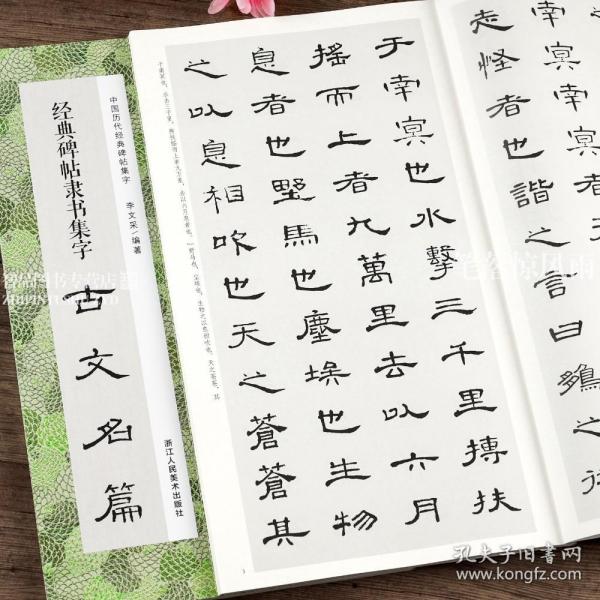 中国历代经典碑帖集字
李文采/编著
经典碑帖隶书集字
古文名篇
浙江人民美术出版社
志怪者也諧之言曰鵬之
南冥南冥者
于南冥也水擊三千里摶扶
搖而上者九萬里去以六月
息者也野馬也塵埃也生物
之以息相吹也天之蒼蒼其
孔夫子旧书网
www.kongfz.com
笔客惊风雨